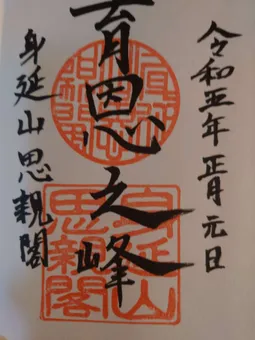 令和五年 正月元日
育恩之峰
身延山思親閣
身延山
思親閣